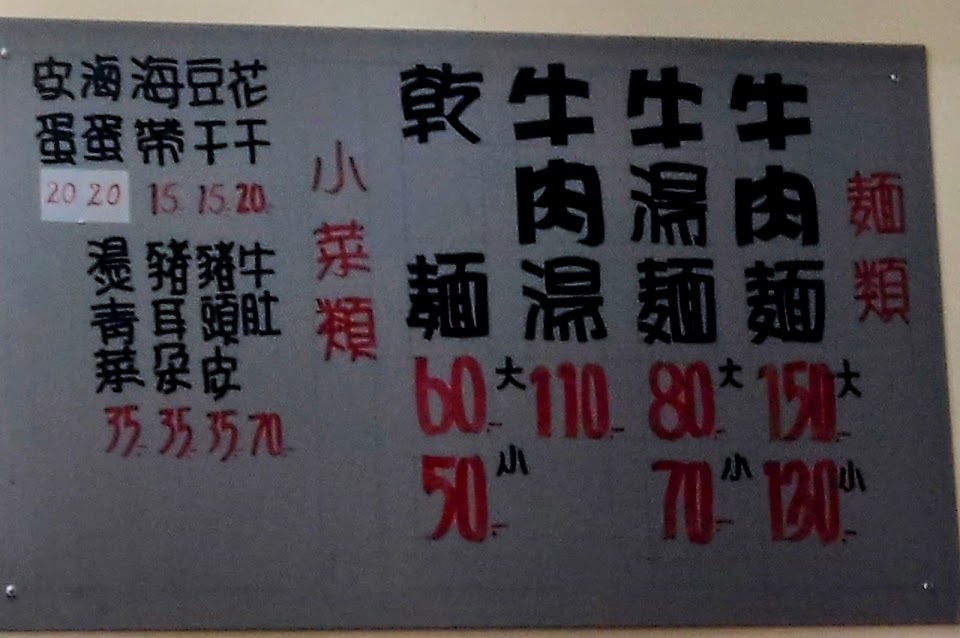 麵類
牛肉麵
150.- 大
130.- 小
牛湯麵
80.- 大
70.- 小
牛肉湯
110.-
乾麵
60.- 大
50.- 小
小菜類
花干
20.
豆干
15.
海帶
15.
滷蛋
20
皮蛋
20
牛肚
70.-
豬頭皮
35.-
豬耳朵
35.-
燙青菜
35.-